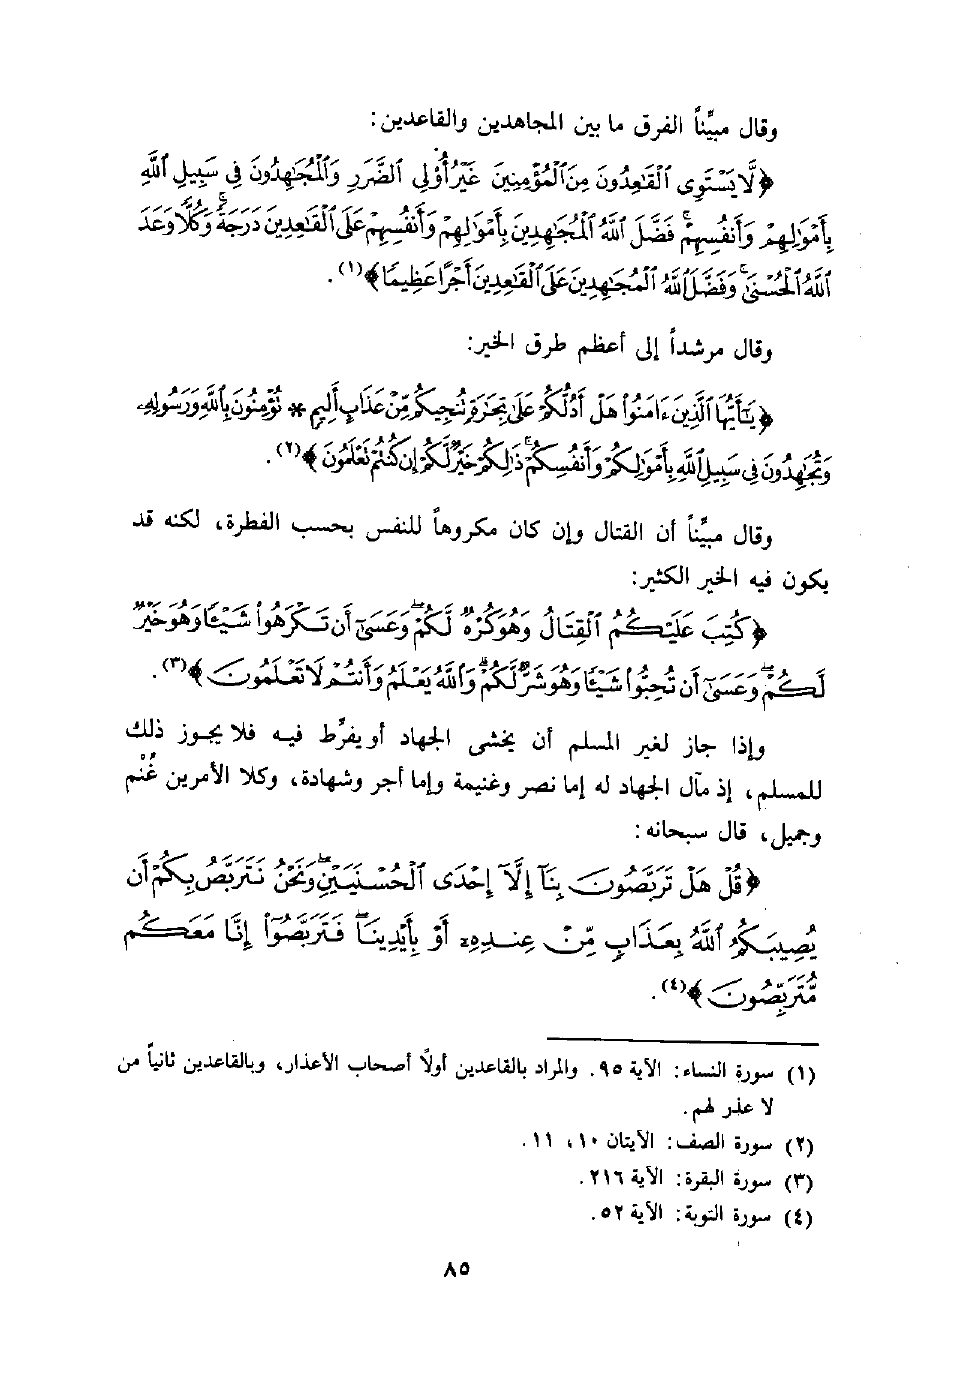 وقال مبيِّناً الفرق ما بين المجاهدين والقاعدين:
﴿لَّا يَسْتَوِى ٱلْقَٰعِدُونَ مِنَ ٱلْمُؤْمِنِينَ غَيْرُ أُوْلِى ٱلضَّرَرِ وَٱلْمُجَٰهِدُونَ فِى سَبِيلِ ٱللَّهِ
بِأَمْوَٰلِهِمْ وَأَنفُسِهِمْ ۚ فَضَّلَ ٱللَّهُ ٱلْمُجَٰهِدِينَ بِأَمْوَٰلِهِمْ وَأَنفُسِهِمْ عَلَى ٱلْقَٰعِدِينَ دَرَجَةً ۚ وَكُلًّا وَعَدَ
ٱللَّهُ ٱلْحُسْنَىٰ ۚ وَفَضَّلَ ٱللَّهُ ٱلْمُجَٰهِدِينَ عَلَى ٱلْقَٰعِدِينَ أَجْرًا عَظِيمًا﴾(١).
وقال مرشداً إلى أعظم طرق الخير:
﴿يَٰٓأَيُّهَا ٱلَّذِينَ ءَامَنُوا۟ هَلْ أَدُلُّكُمْ عَلَىٰ تِجَٰرَةٍ تُنجِيكُم مِّنْ عَذَابٍ أَلِيمٍ * تُؤْمِنُونَ بِٱللَّهِ وَرَسُولِهِۦ
وَتُجَٰهِدُونَ فِى سَبِيلِ ٱللَّهِ بِأَمْوَٰلِكُمْ وَأَنفُسِكُمْ ۚ ذَٰلِكُمْ خَيْرٌ لَّكُمْ إِن كُنتُمْ تَعْلَمُونَ﴾(٢).
وقال مبيِّناً أن القتال وإن كان مكروهاً للنفس بحسب الفطرة، لكنه قد
يكون فيه الخير الكثير:
﴿كُتِبَ عَلَيْكُمُ ٱلْقِتَالُ وَهُوَ كُرْهٌ لَّكُمْ ۖ وَعَسَىٰٓ أَن تَكْرَهُوا۟ شَيْـًٔا وَهُوَ خَيْرٌ
لَّكُمْ ۖ وَعَسَىٰٓ أَن تُحِبُّوا۟ شَيْـًٔا وَهُوَ شَرٌّ لَّكُمْ ۗ وَٱللَّهُ يَعْلَمُ وَأَنتُمْ لَا تَعْلَمُونَ﴾(٣).
وإذا جاز لغير المسلم أن يخشى الجهاد أو يفرِّط فيه فلا يجوز ذلك
للمسلم، إذ مآل الجهاد له إما نصر وغنيمة وإما أجر وشهادة، وكلا الأمرين غُنْم
وجميل، قال سبحانه:
﴿قُلْ هَلْ تَرَبَّصُونَ بِنَآ إِلَّآ إِحْدَى ٱلْحُسْنَيَيْنِ ۖ وَنَحْنُ نَتَرَبَّصُ بِكُمْ أَن
يُصِيبَكُمُ ٱللَّهُ بِعَذَابٍ مِّنْ عِندِهِۦٓ أَوْ بِأَيْدِينَا ۖ فَتَرَبَّصُوٓا۟ إِنَّا مَعَكُم
مُّتَرَبِّصُونَ﴾(٤).
(١) سورة النساء: الآية ٩٥. والمراد بالقاعدين أولاً أصحاب الأعذار، وبالقاعدين ثانياً من
لا عذر لهم.
(٢) سورة الصف: الآيتان ١٠، ١١.
(٣) سورة البقرة: الآية ٢١٦.
(٤) سورة التوبة: الآية ٥٢.
٨٥